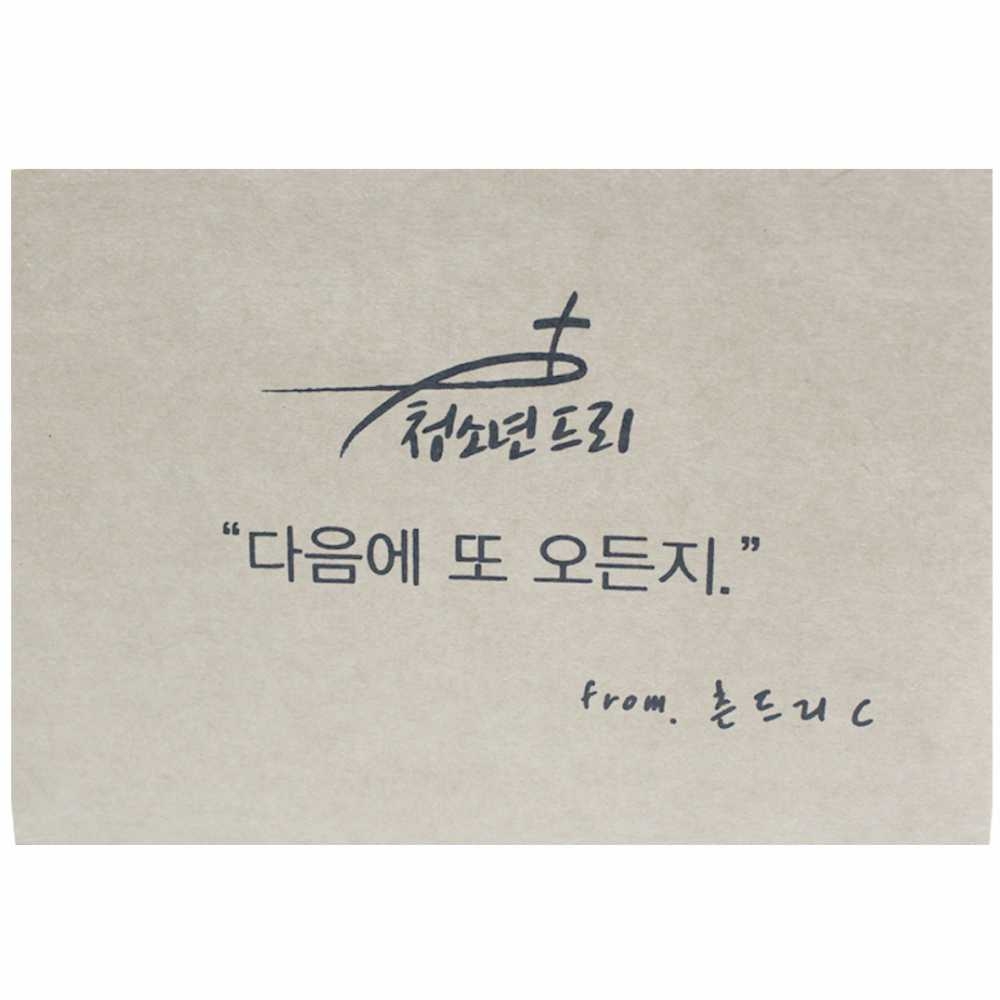 청소년프리
“다음에 또 오든지.”
from. 흔드리 C